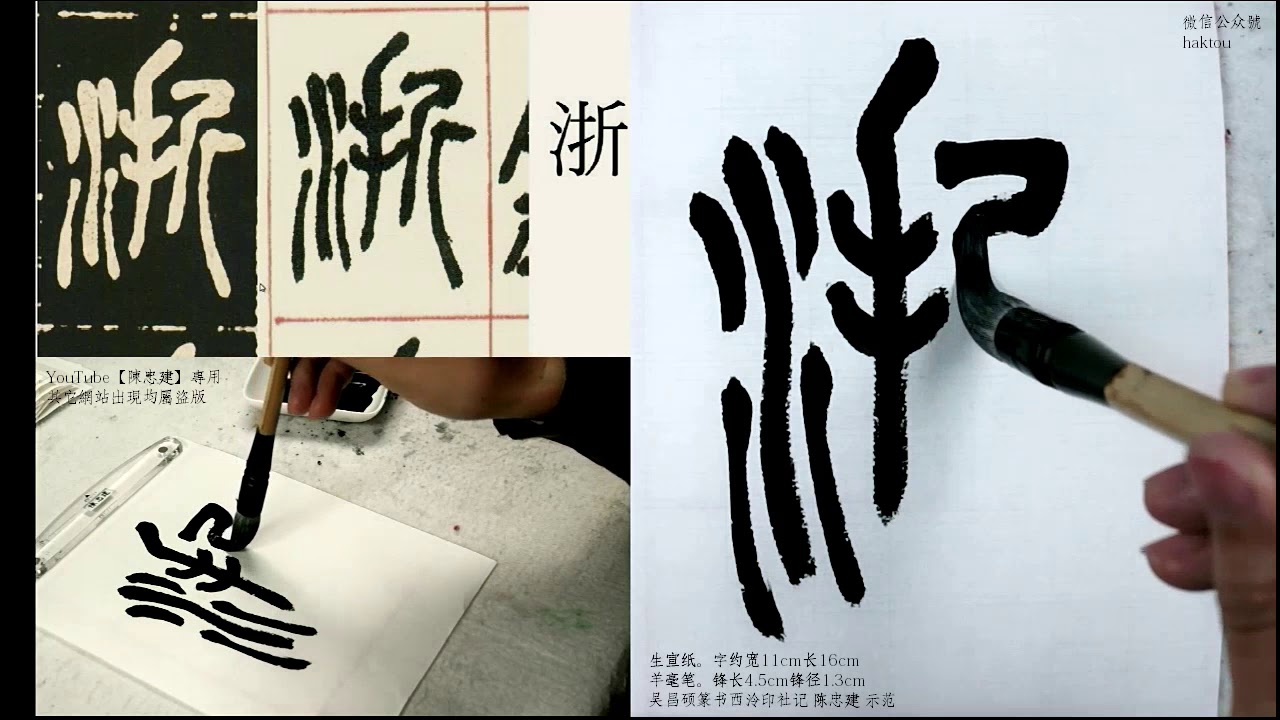 浙
微信公众號
haktou
YouTube【陳忠建】專用
其它網站出現均屬盜版
生宣纸。字约宽11cm长16cm
羊毫笔。锋长4.5cm锋径1.3cm
吴昌硕篆书西泠印社记 陈忠建 示范